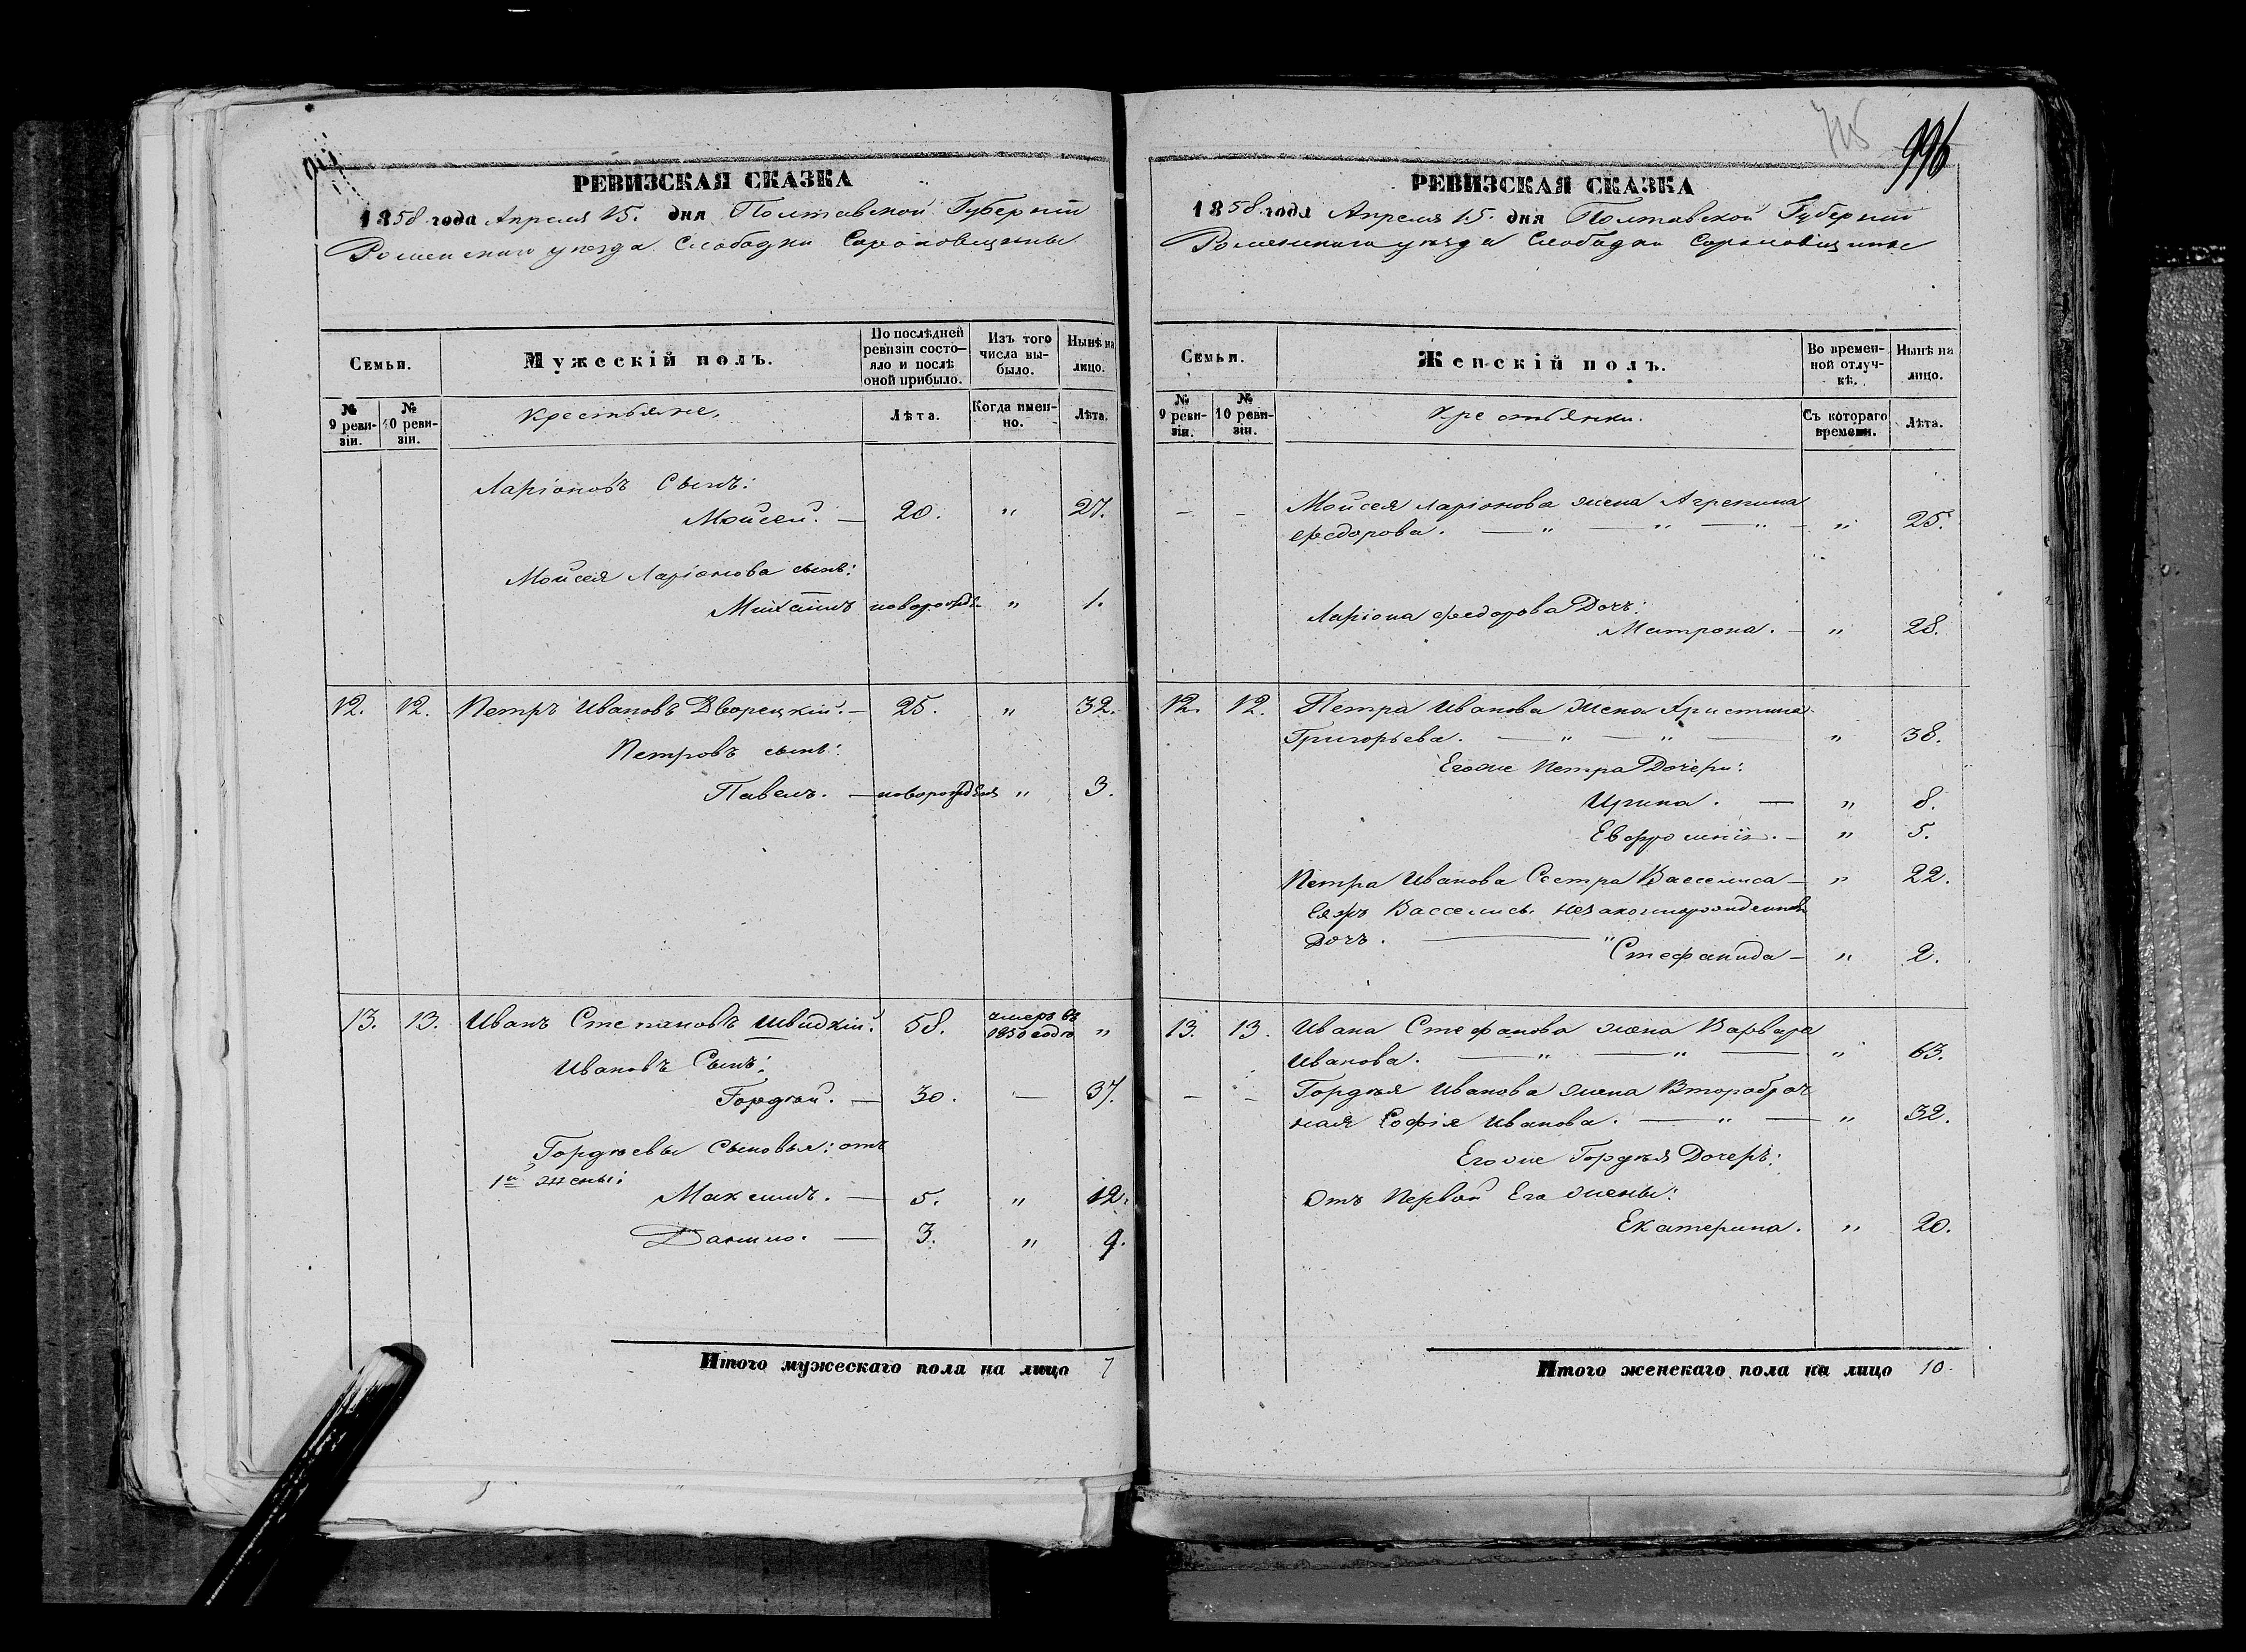 РЕВИЗСКАЯ СКАЗКА
1858 года Апреля 15. дня Полтавской Губерніи
Роменскаго уезда Слободки
Семьи.
Мужескій полъ.
По послѣдней ревизіи состо-
яло и послѣ
оной прибыло.
Изъ того
числа вы-
было.
Нынѣ на
лицо.
№
9 реви-
зіи.
№
10 реви-
зіи.
Крестьяне,
Лѣта.
Когда имен-
но.
Лѣта.
Ларіоновъ Сынъ:
Мойсей. — 20. " 27.
Мойсея Ларіонова сынъ:
Михаилъ новорожд. " 1.
12. 12. Петръ Ивановъ Дворецкій. — 25. " 32.
Петровъ сынъ:
Павелъ. — новорожден " 3.
13. 13. Иванъ Степановъ Швидкій. 58. умеръ въ
1850 годъ "
Ивановъ Сынъ:
Гордѣй. — 30. — 37.
Гордѣевы Сыновья: отъ
1й жены:
Максимъ. — 5. " 12.
Данило. — 3. " 9.
Итого мужескаго пола на лицо 7
996
РЕВИЗСКАЯ СКАЗКА
1858 года Апреля 15. дня Полтавской Губерніи
Роменскаго уезда Слободки
Семьи.
Женскій полъ.
Во времен-
ной отлуч-
кѣ.
Нынѣ на
лицо.
№
9 реви-
зіи.
№
10 реви-
зіи.
Крестьянки.
Съ котораго
времени.
Лѣта.
— — Мойсея Ларіонова жена Агрепина
Федорова. — " — " — " — " 25.
Ларіона Федорова Дочъ:
Матрона. — " 28.
12. 12. Петра Иванова жена Христина
Григорьева. — " — " — " 38.
Егоже Петра Дочери:
Ирина. — " 8.
Евфросинія. — " 5.
Петра Иванова Сестра Васселиса — " 22.
Еяжъ Васселисы незаконнорожденная
Дочъ. — " Стефанида — " 2.
13. 13. Ивана Стефанова жена Варвара
Иванова. — " — " — " 63.
— — Гордѣя Иванова жена Второбрач
ная Софія Иванова. — " — " 32.
Егоже Гордѣя Дочеръ:
Отъ Первой Его жены:
Екатерина. " 20.
Итого женскаго пола на лицо 10.